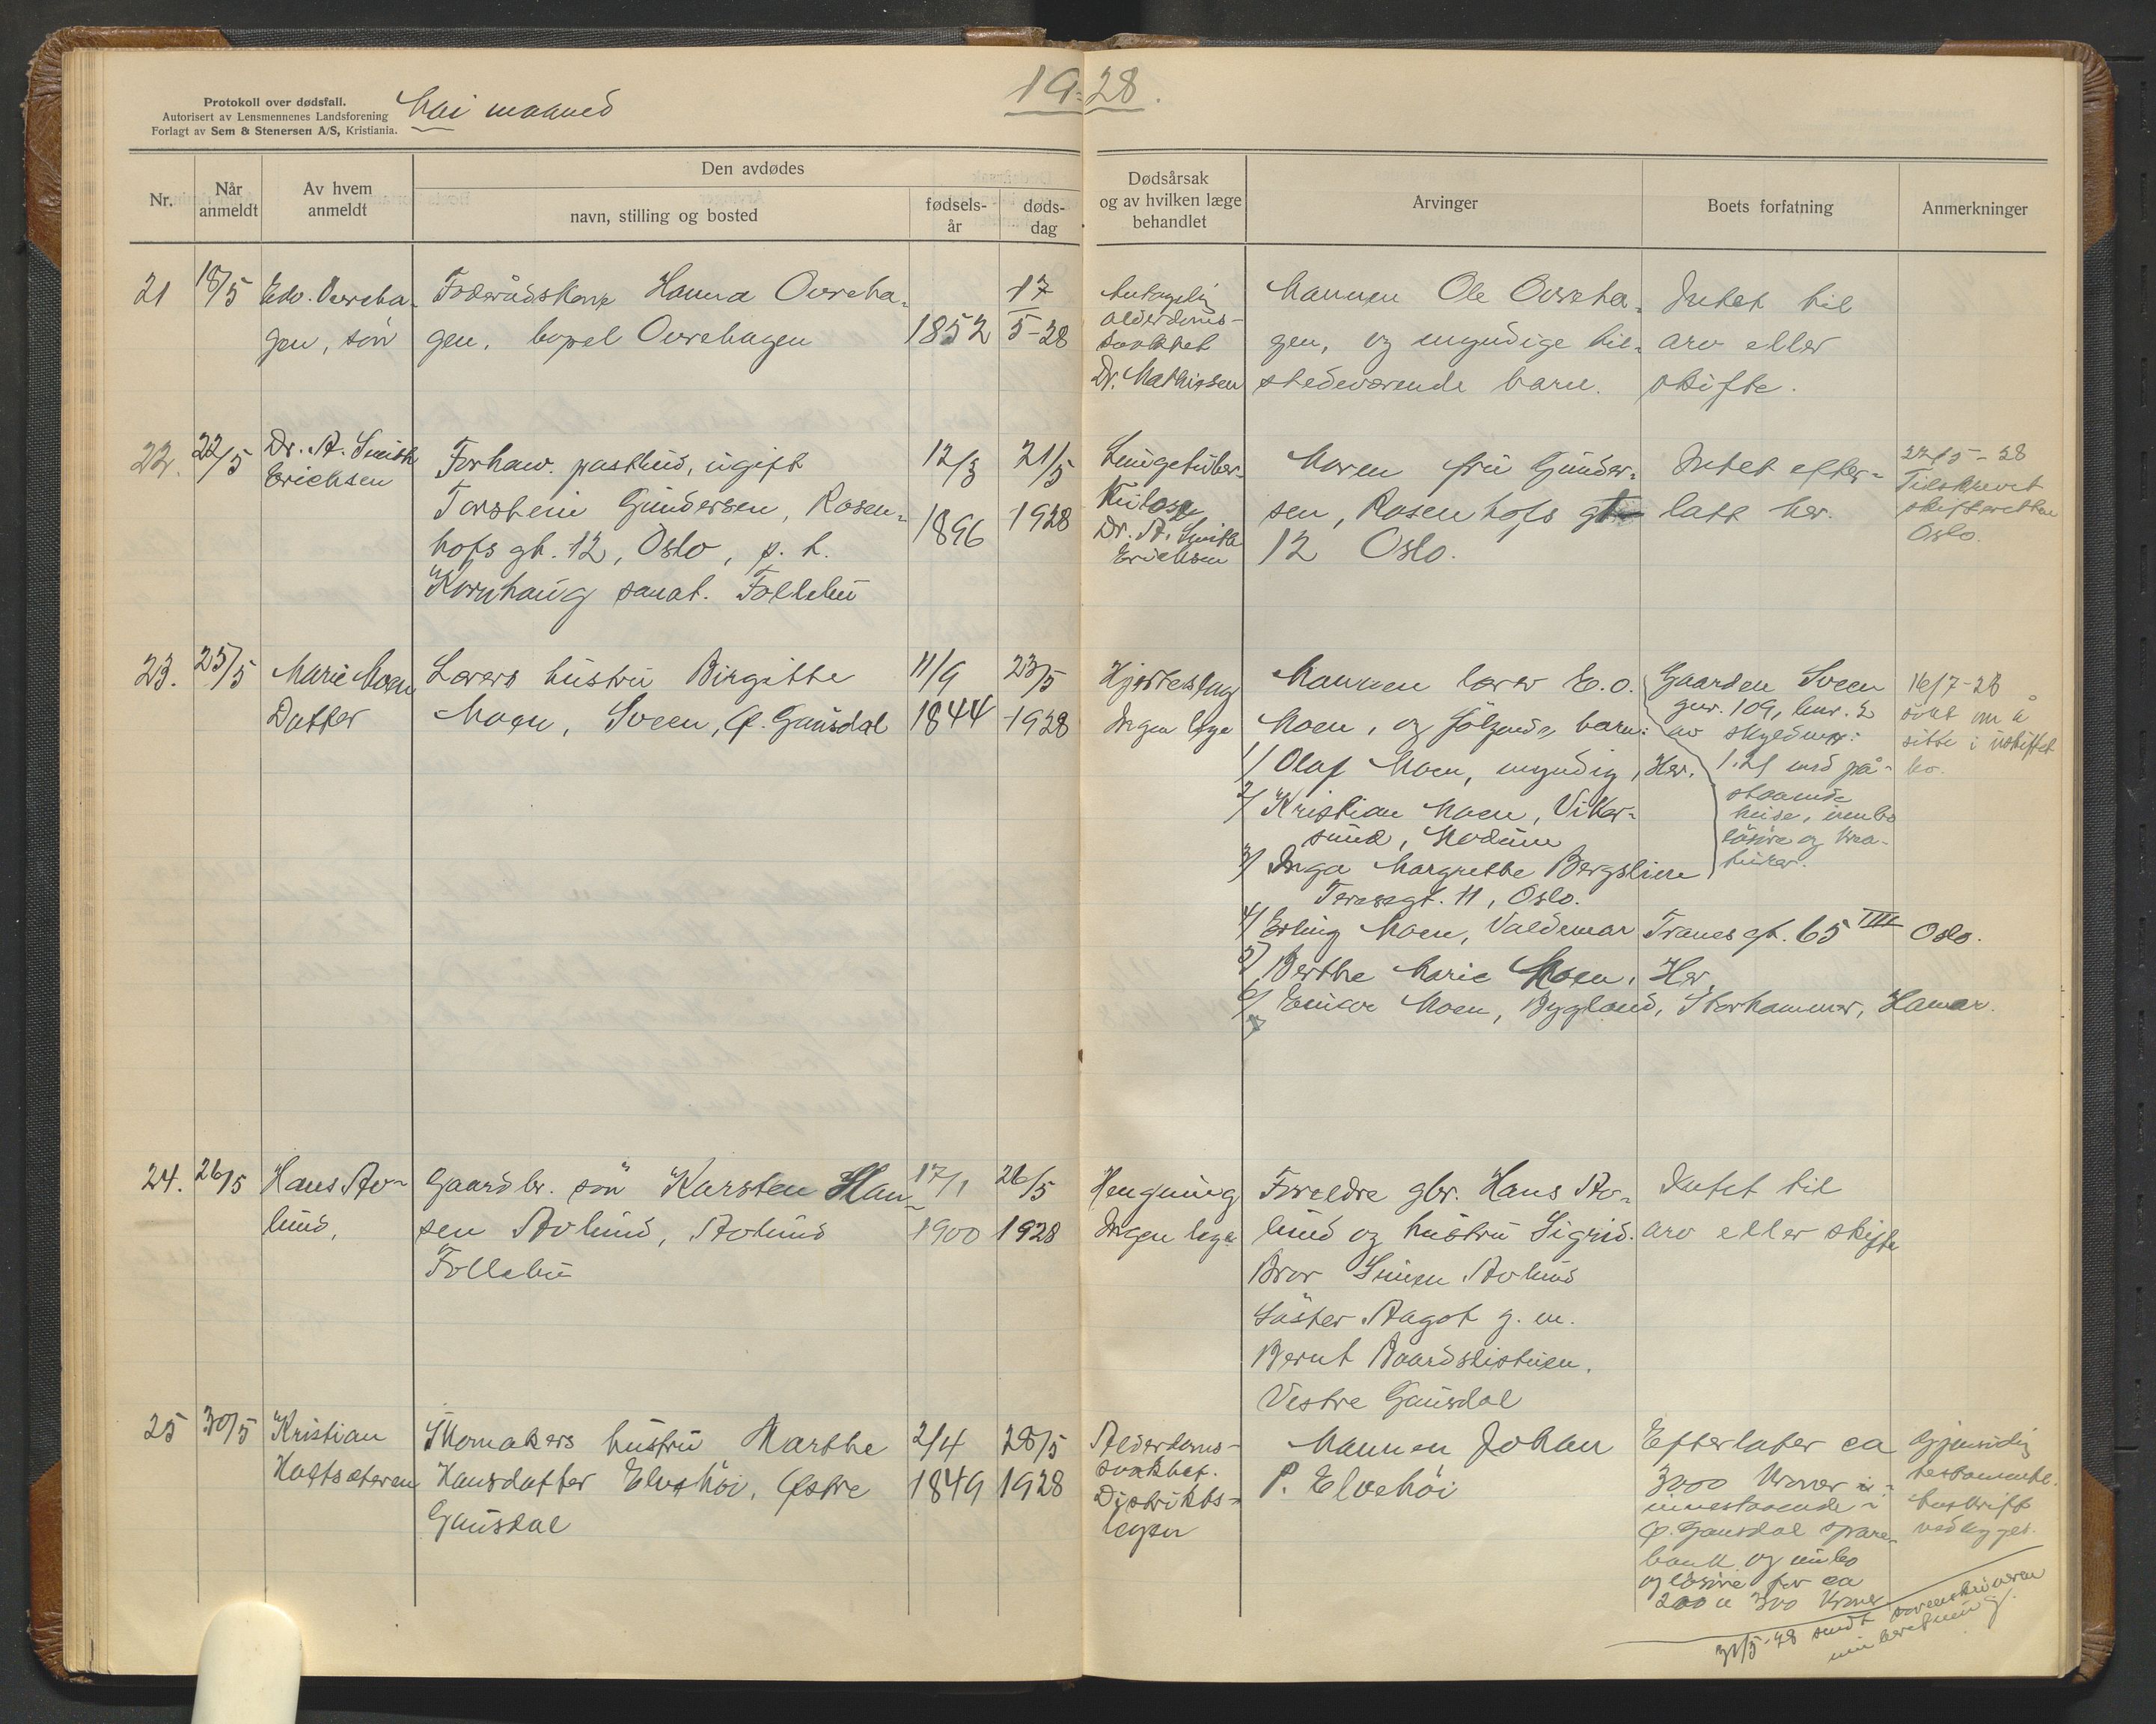 19-28.
Protokoll over dødsfall.
Autorisert av Lensmennenes Landsforening
Forlagt av Sem & Stenersen A/S, Kristiania.
Mai maaned
Nr.
Når anmeldt
Av hvem anmeldt
Den avdødes
navn, stilling og bosted
fødsels-år
døds-dag
Dødsårsak
og av hvilken læge
behandlet
Arvinger
Boets forfatning
Anmerkninger
21
18/5
Edv. Overeha-
gen, søn
Føderådskone Hanna Overeha-
gen, bopel Overehagen
1852
17
5-28
Antagelig
alderdoms-
svakhet
Dr. Mathissen
Mannen Ole Overeha-
gen, og myndige til-
stedeværende barn.
Intet til
arv eller
skifte.
22.
22/5
Dr. A. Smith
Erichsen
Forhaw. postbud, ugift
Torstein Gundersen, Rosen-
hofs gt. 12, Oslo, p. t.
Kornhaug sanat. Follebu
12/3
1896
21/5
1928
Lungetuber-
kulose
Dr. A. Smith
Erichsen
Moren fru Gunder-
sen, Rosenhofs gt
12 Oslo.
Intet efter-
latt her.
22/5-28
Tilskrevet
skifteretten
Oslo.
23.
25/5
Marie Moen
Datter
Lærers hustru Birgitte
Moen, Sveen, Ø. Gausdal
11/9
1844
23/5
1928
Hjerteslag
Ingen læge
Mannen lærer E. O.
Moen, og følgende barn:
1/ Olaf Moen, myndig, Her.
2/ Kristian Moen, Viker-
sund, Modum
3/ Inga Margrethe Bergslien
Teressegt. 11, Oslo.
4/ Erling Moen, Valdemar Tranes gt. 65 III Oslo.
5/ Berthe Marie Moen, Her
6/ Einar Moen, Bygland, Storhammer, Hamar.
Gaarden Sveen
gnr. 109, bnr. 2
av skyldmrk:
1.21 med på-
staaende
huse, innbo
løsøre og krea-
turer.
16/7-28
søkt om å
sitte i uskiftet
bo.
24.
26/5
Hans Av-
lund,
Gaardbr. søn Karsten Han-
sen Avlund, Avlund
Follebu
17/1
1900
26/5
1928
Hengning
Ingen læge
Foreldre gbr. Hans Av-
lund og hustru Sigrid.
Bror Simen Avlund
Søster Aagot g. m.
Bernt Baardslistuen,
Vestre Gausdal
Intet til
arv eller skifte
25
30/5
Kristian
Holtsæteren
Skomakers hustru Marthe
Hansdatter Elvehøi, Østre
Gausdal
2/4
1849
28/5
1928
Alderdoms-
svakhet.
Distrikts-
lægen
Mannen Johan
P. Elvehøi
Efterlater ca
3000 kroner
innestaaende i
Ø. Gausdal spare-
bank og innbo
og løsøre for ca
200 a 300 kroner
Gjensidig
testamente.
Avskrift
vedlegges.
31/5-28 sendt sorenskriveren
innberetning.